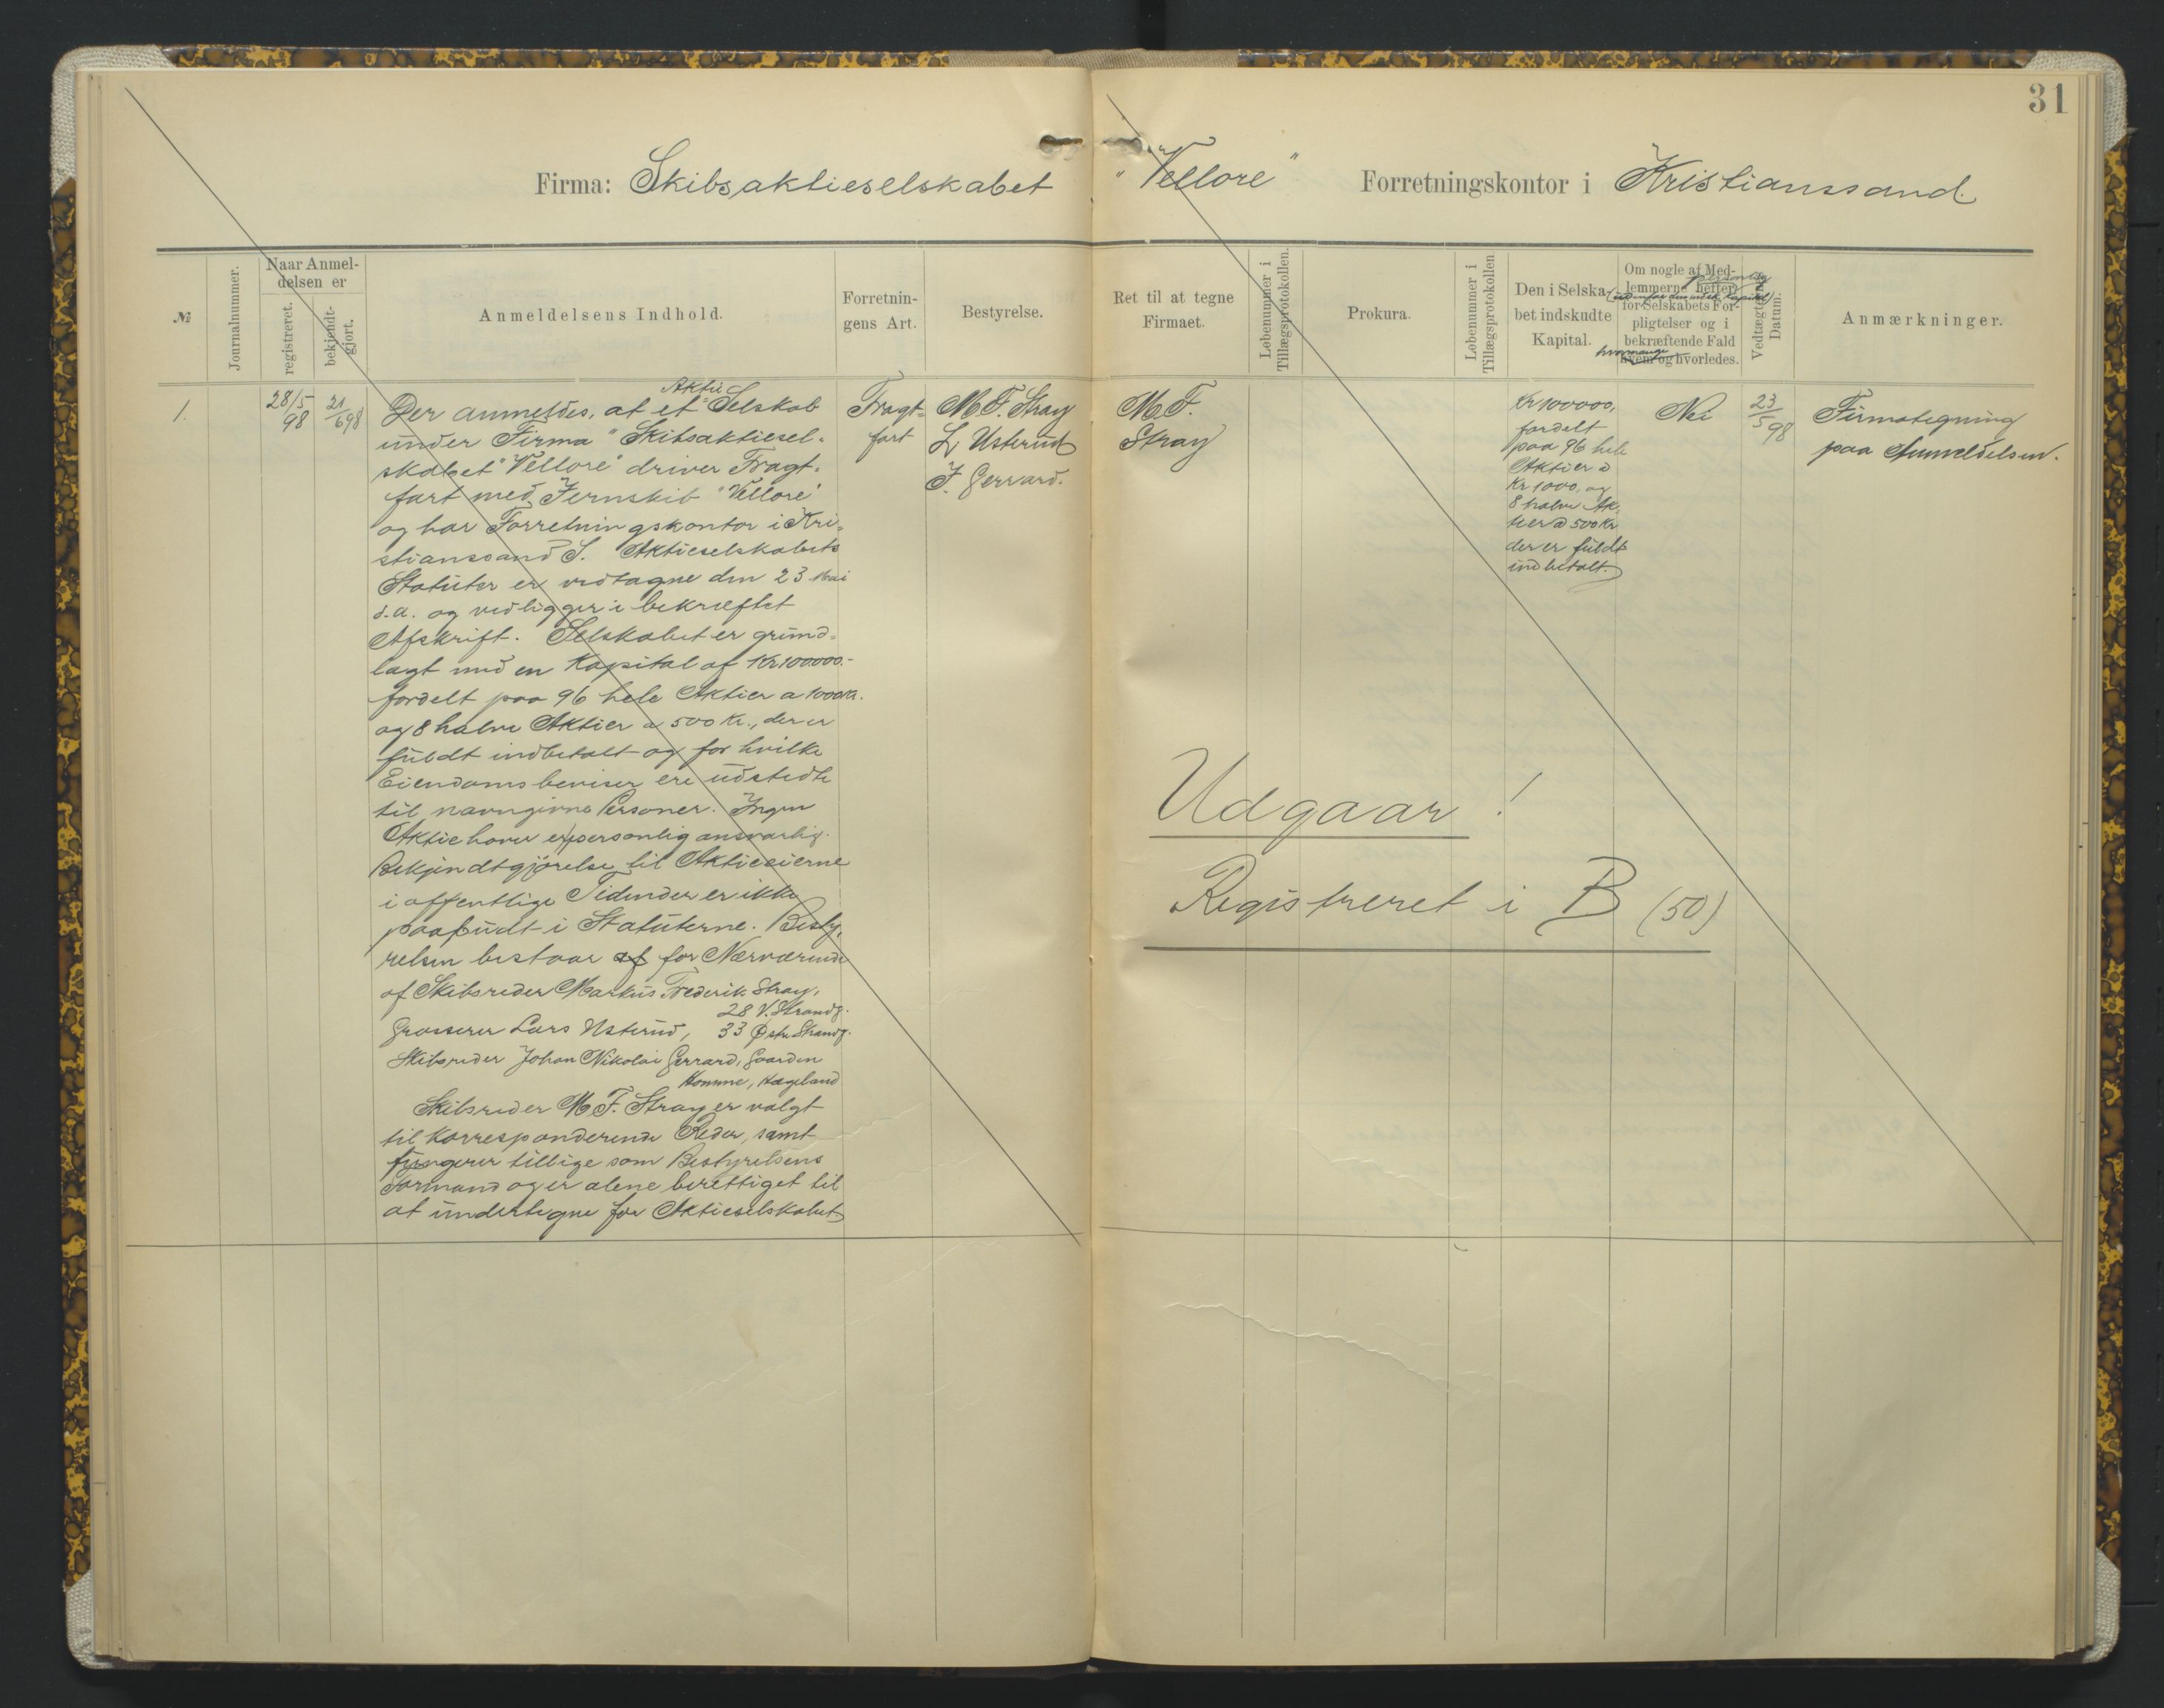 31
Firma: Skibsaktieselskabet "Vellore" Forretningskontor i Kristianssand.
№
Journalnummer.
Naar Anmel-
delsen er
registreret.
bekjendt-
gjort.
Anmeldelsens Indhold.
Forretnin-
gens Art.
Bestyrelse.
Ret til at tegne
Firmaet.
Løbenummer i
Tillægsprotokollen.
Prokura.
Løbenummer i
Tillægsprotokollen
Den i Selska-
bet indskudte
Kapital.
Om nogle af Med-
personlig
lemmerne hefter
(udenfor den indsk. Kapital)
for Selskabets For-
pligtelser og i
bekræftende Fald
hvormange
hvem og hvorledes.
Vedtægternes
Datum.
Anmærkninger.
1.
28/5
98
21/6 98
Aktie
Der anmeldes, at et Selskab
under Firma "Skibsaktiesel-
skabet "Vellore" driver Fragt-
fart med Jernskib "Vellore"
og har Forretningskontor i Kri-
stianssand S. Aktieselskabets
Statuter er vedtagne den 23 Mai
d.a. og vedligger i bekræftet
Afskrift. Selskabet er grund-
lagt med en Kapital af Kr 100000.-
fordelt paa 96 hele Aktier a 1000 Kr.
og 8 halve Aktier a 500 Kr., der er
fuldt indbetalt og for hvilke
Eiendomsbeviser ere udstedte
til navngivne Personer. Ingen
Aktiehaver er personlig ansvarlig.
Bekjendtgjørelse til Aktieeierne
i offentlige Tidender er ikke
paabudt i Statuterne. Besty-
relsen bestaar af for Nærværende
af Skibsreder Markus Frederik Stray,
28 V. Strandg.
Grosserer Lars Usterud, 33 Østre Strandg.
Skibsreder Johan Nikolai Gerrard, Gaarden
Homme, Hægeland
Skibsreder M. F. Stray er valgt
til korresponderende Reder, samt
fungerer tillige som Bestyrelsens
Formand og er alene berettiget til
at undertegne for Aktieselskabet
Fragt-
fart
M. F. Stray
L. Usterud
J. Gerrard.
M. F.
Stray
Kr 100000,
fordelt
paa 96 hele
Aktier a
Kr 1000, og
8 halve Ak-
tier a 500 Kr
der er fuldt
indbetalt.
Nei
23/5 98
Firmategning
paa Anmeldelsen.
Udgaar!
Registreret i B (50)